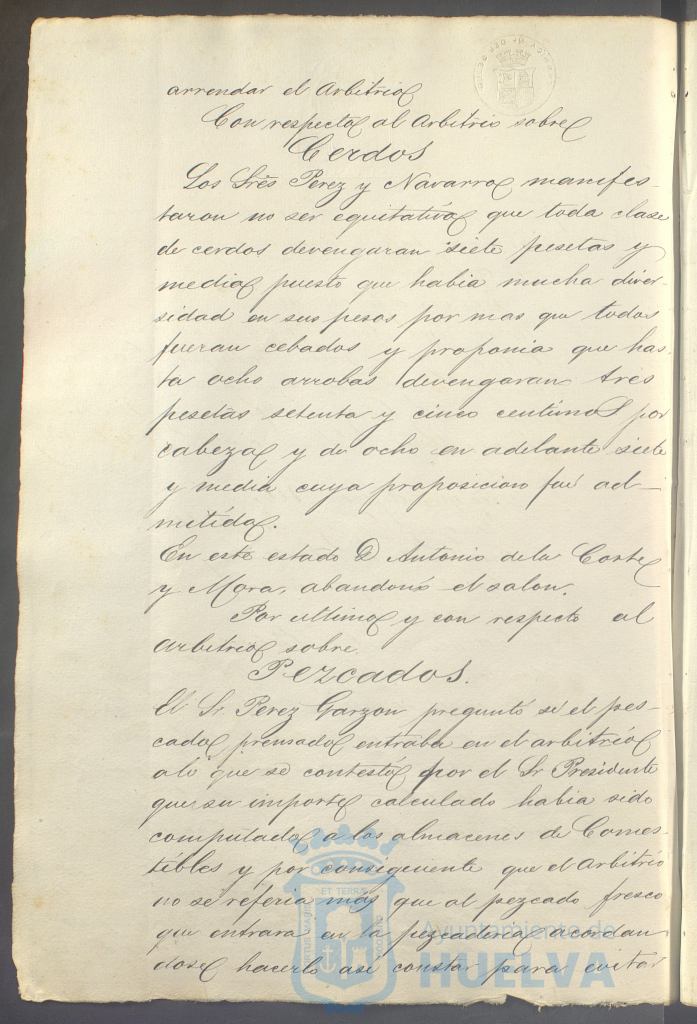 arrendar el arbitrio
Con respecto al arbitrio sobre
Cerdos
Los Sres Perez y Navarro manifes-
taron no ser equitativo que toda clase
de cerdos devengaran siete pesetas y
media puesto que habia mucha diver-
sidad en sus pesos por mas que todos
fueran cebados y proponia que has-
ta ocho arrobas devengaran tres
pesetas setenta y cinco centimos por
cabeza y de ocho en adelante siete
y media cuya proposicion fué ad-
mitida.
En este estado D Antonio de la Corte
y Mora, abandonó el salon.
Por ultimo y con respecto al
arbitrio sobre
Pezcados.
El Sr Perez Garzon preguntó si el pes-
cado prensado entraba en el arbitrio
a lo que se contestó por el Sr Presidente
que su importe calculado habia sido
computado a los almacenes de Comes-
tibles y por consiguiente que el arbitrio
no se referia más que al pezcado fresco
que entrara en la pezcaderia acordan
dose hacerlo asi constar para evitar
Ayuntamiento de
HUELVA